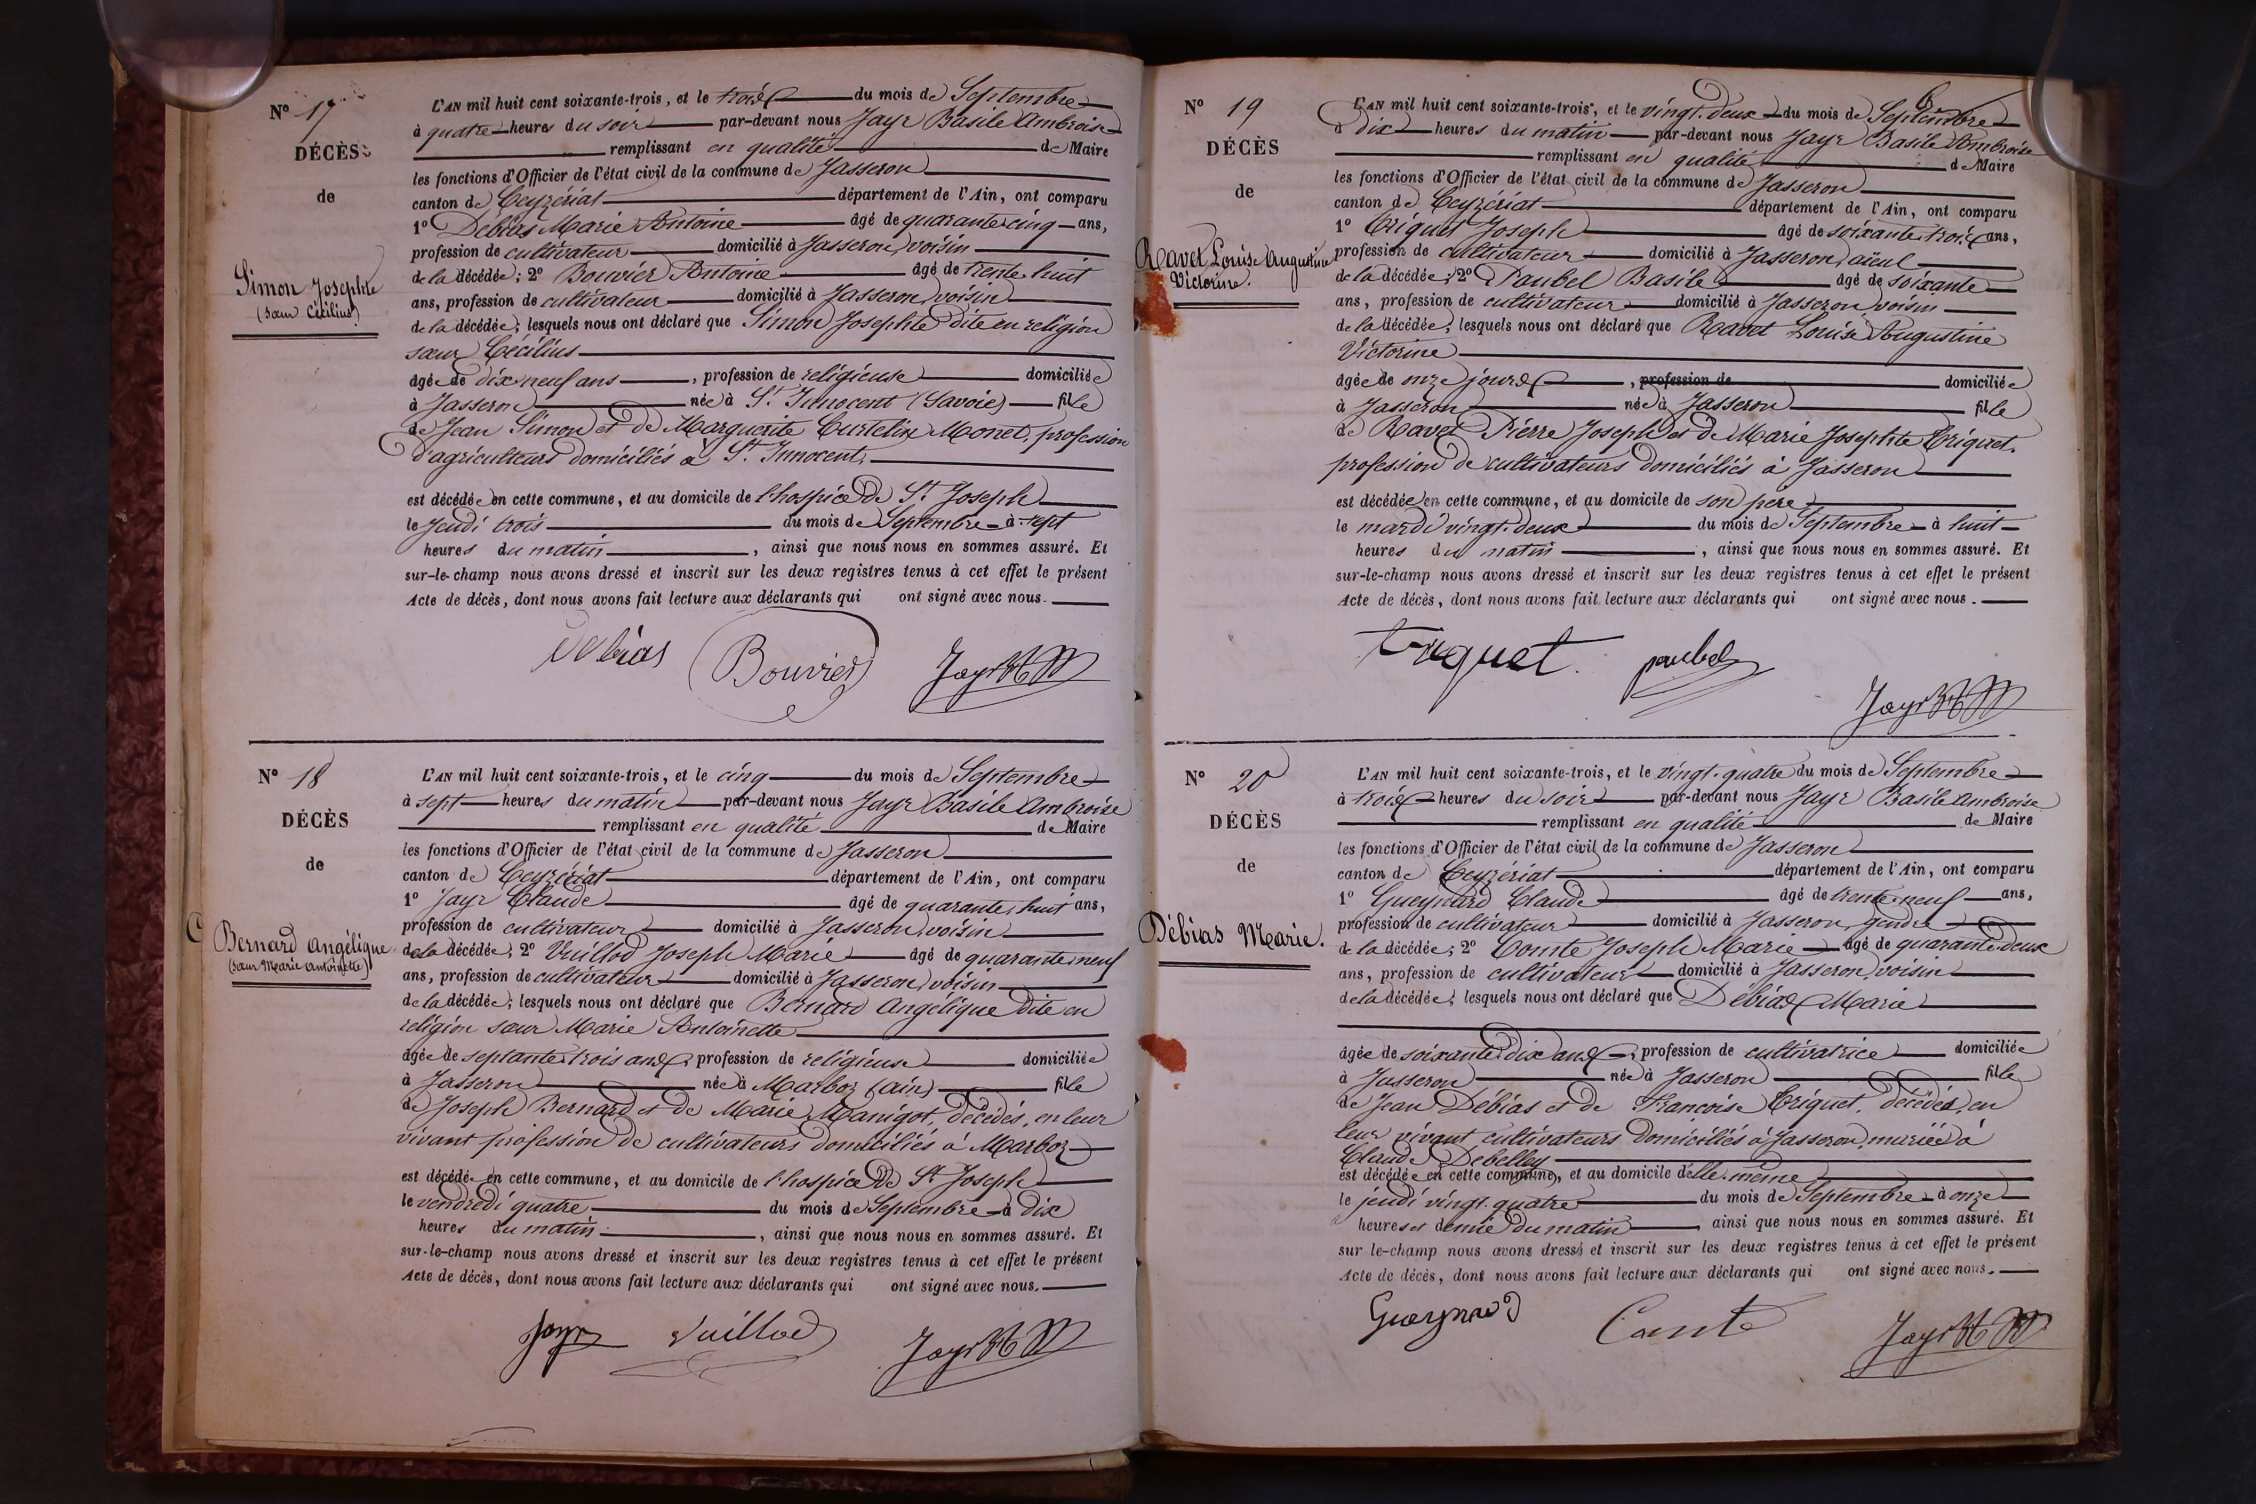 N° 17
DÉCÈS
de
Simon Josephte
(sœur Cécilius)
L'AN mil huit cent soixante-trois, et le trois du mois de Septembre
à quatre heures du soir par-devant nous Jayr Basile Ambroise
remplissant en qualité de Maire
les fonctions d'Officier de l'état civil de la commune de Jasseron
canton de Ceyzériat département de l'Ain, ont comparu
1° Débias Marie Antoine âgé de quarante cinq ans,
profession de cultivateur domicilié à Jasseron, voisin
de la décédée; 2° Bouvier Antoine âgé de trente huit
ans, profession de cultivateur domicilié à Jasseron, voisin
de la décédée; lesquels nous ont déclaré que Simon Josephte dite en religion
sœur Cécilius
âgée de dix neuf ans, profession de religieuse domiciliée
à Jasseron née à St Innocent (Savoie) fille
de Jean Simon et de Marguerite Curtelin Monet, profession
d'agriculteurs domiciliés à St Innocent,
est décédée en cette commune, et au domicile de l'hospice de St Joseph
le Jeudi trois du mois de Septembre à sept
heures du matin, ainsi que nous nous en sommes assuré. Et
sur-le-champ nous avons dressé et inscrit sur les deux registres tenus à cet effet le présent
Acte de décès, dont nous avons fait lecture aux déclarants qui ont signé avec nous.
Débias Bouvier Jayr
N° 18
DÉCÈS
de
Bernard Angélique
(sœur Marie Antoinette)
L'AN mil huit cent soixante-trois, et le cinq du mois de Septembre
à sept heures du matin par-devant nous Jayr Basile Ambroise
remplissant en qualité de Maire
les fonctions d'Officier de l'état civil de la commune de Jasseron
canton de Ceyzériat département de l'Ain, ont comparu
1° Jayr Claude âgé de quarante huit ans,
profession de cultivateur domicilié à Jasseron, voisin
de la décédée; 2° Vuillod Joseph Marie âgé de quarante neuf
ans, profession de cultivateur domicilié à Jasseron, voisin
de la décédée; lesquels nous ont déclaré que Bernard Angélique dite en
religion sœur Marie Antoinette
âgée de septante trois ans, profession de religieuse domiciliée
à Jasseron née à Marboz (ain) fille
de Joseph Bernard et de Marie Manigot, décédés, en leur
vivant profession de cultivateurs domiciliés à Marboz
est décédée en cette commune, et au domicile de l'hospice de St Joseph
le vendredi quatre du mois de Septembre à dix
heures du matin, ainsi que nous nous en sommes assuré. Et
sur-le-champ nous avons dressé et inscrit sur les deux registres tenus à cet effet le présent
Acte de décès, dont nous avons fait lecture aux déclarants qui ont signé avec nous.
Jayr Vuillod Jayr
N° 19
DÉCÈS
de
Ravet Louise Augustine
Victorine.
L'AN mil huit cent soixante-trois, et le vingt-deux du mois de Septembre
à dix heures du matin par-devant nous Jayr Basile Ambroise
remplissant en qualité de Maire
les fonctions d'Officier de l'état civil de la commune de Jasseron
canton de Ceyzériat département de l'Ain, ont comparu
1° Criquet Joseph âgé de soixante trois ans,
profession de cultivateur domicilié à Jasseron, aïeul
de la décédée; 2° Paubel Basile âgé de soixante
ans, profession de cultivateur domicilié à Jasseron, voisin
de la décédée; lesquels nous ont déclaré que Ravet Louise Augustine
Victorine
âgée de onze jours, profession de domiciliée
à Jasseron née à Jasseron fille
de Ravet Pierre Joseph et de Marie Josephte Criquet,
profession de cultivateurs domiciliés à Jasseron
est décédée en cette commune, et au domicile de son père
le mardi vingt-deux du mois de Septembre à huit
heures du matin, ainsi que nous nous en sommes assuré. Et
sur-le-champ nous avons dressé et inscrit sur les deux registres tenus à cet effet le présent
Acte de décès, dont nous avons fait lecture aux déclarants qui ont signé avec nous.
Criquet. paubel
Jayr
N° 20
DÉCÈS
de
Débias Marie.
L'AN mil huit cent soixante-trois, et le vingt-quatre du mois de Septembre
à trois heures du soir par-devant nous Jayr Basile Ambroise
remplissant en qualité de Maire
les fonctions d'Officier de l'état civil de la commune de Jasseron
canton de Ceyzériat département de l'Ain, ont comparu
1° Gueynard Claude âgé de trente neuf ans,
profession de cultivateur domicilié à Jasseron, gendre
de la décédée; 2° Comte Joseph Marie âgé de quarante deux
ans, profession de cultivateur domicilié à Jasseron, voisin
de la décédée; lesquels nous ont déclaré que Débias Marie
âgée de soixante dix ans, profession de cultivatrice domiciliée
à Jasseron née à Jasseron fille
de Jean Débias et de Francoise Criquet, décédés, en
leur vivant cultivateurs domiciliés à Jasseron, mariée à
Claude Debelley
est décédée en cette commune, et au domicile d'elle même
le jeudi vingt-quatre du mois de Septembre à onze
heures et demie du matin, ainsi que nous nous en sommes assuré. Et
sur le-champ nous avons dressé et inscrit sur les deux registres tenus à cet effet le présent
Acte de décès, dont nous avons fait lecture aux déclarants qui ont signé avec nous.
Gueynard Comte Jayr